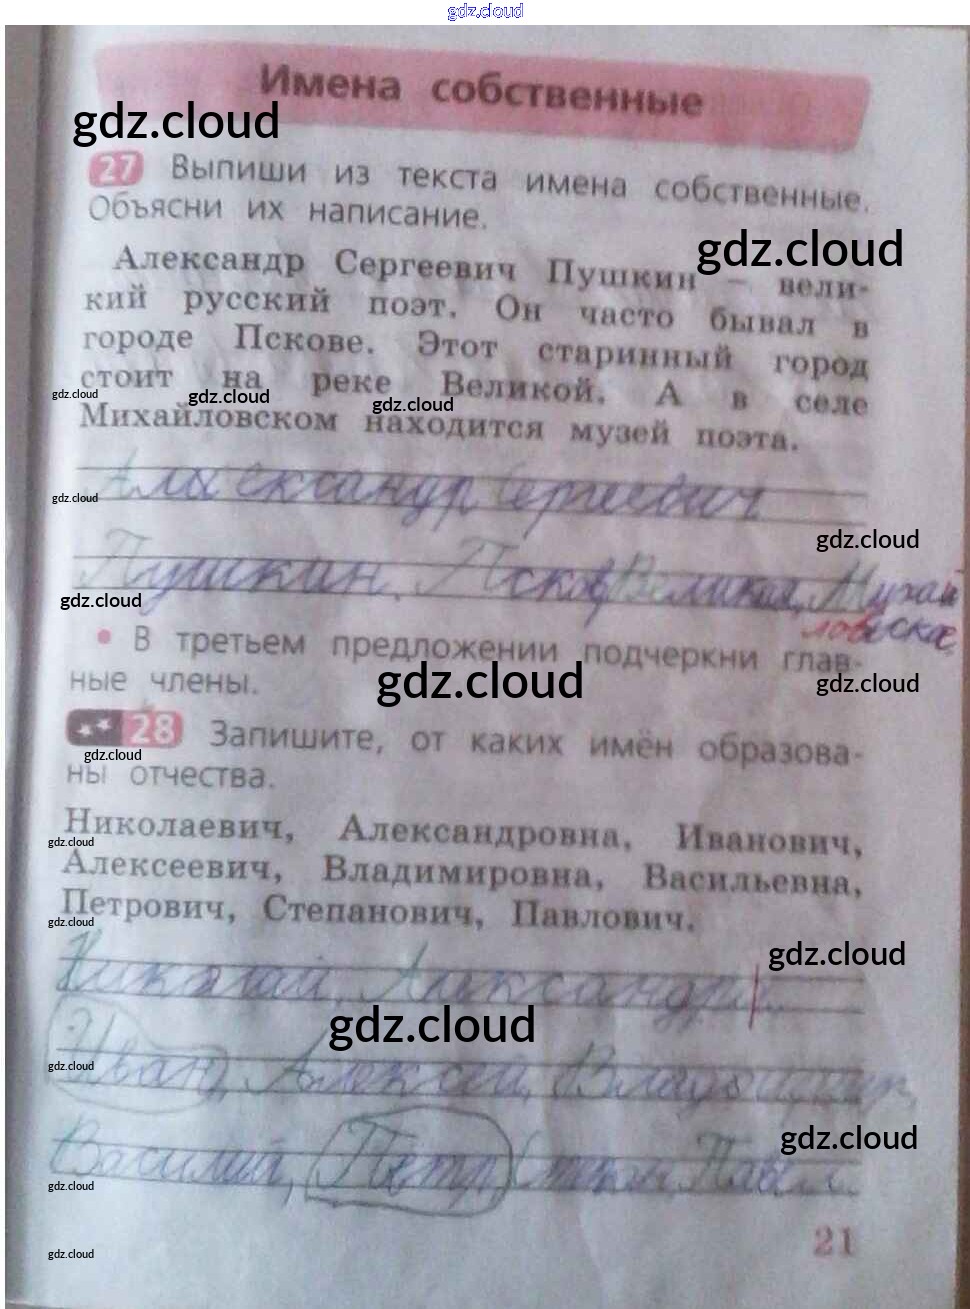 gdz.cloud
Имена собственные
gdz.cloud
27 Выпиши из текста имена собственные.
Объясни их написание.
gdz.cloud
Александр Сергеевич Пушкин – вели-
кий русский поэт. Он часто бывал в
городе Пскове. Этот старинный город
стоит на реке Великой. А в селе
gdz.cloud gdz.cloud gdz.cloud
Михайловском находится музей поэта.
Александр Сергеевич
gdz.cloud
gdz.cloud
Пушкин, Псков, Великая, Михай
gdz.cloud
ловское
• В третьем предложении подчеркни глав-
ные члены.
gdz.cloud gdz.cloud
28 Запишите, от каких имён образова-
gdz.cloud
ны отчества.
Николаевич, Александровна, Иванович,
gdz.cloud
Алексеевич, Владимировна, Васильевна,
Петрович, Степанович, Павлович.
gdz.cloud
gdz.cloud
Николай, Александр
gdz.cloud
Иван, Алексей, Владимир,
gdz.cloud
gdz.cloud
Василий, Петр, Степан, Павел.
gdz.cloud
21
gdz.cloud